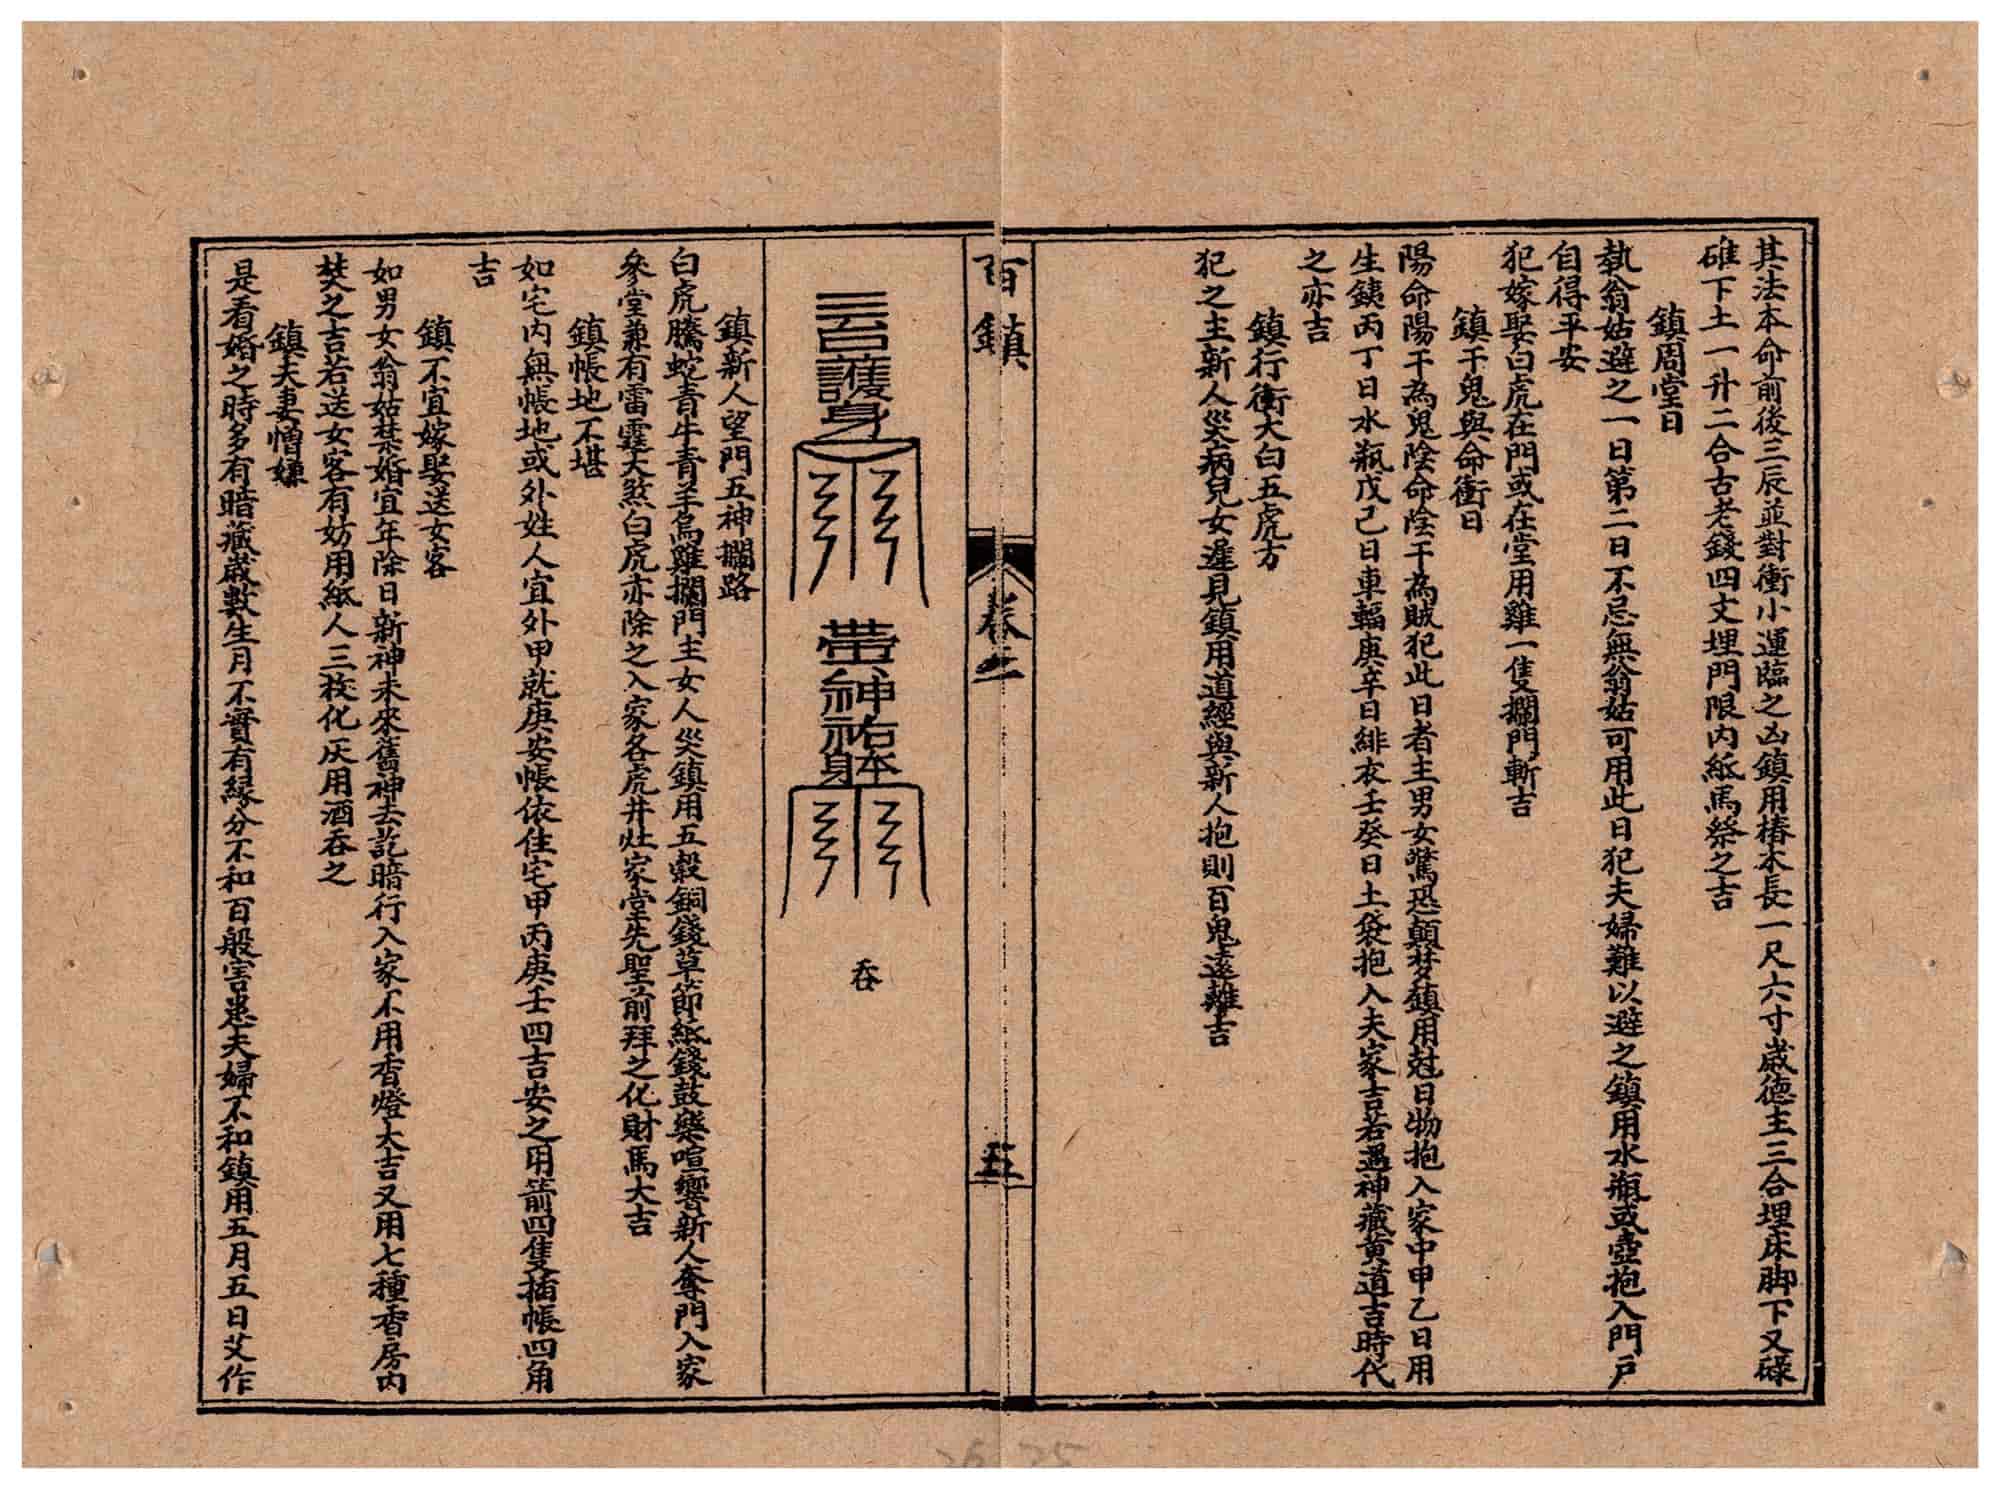 其法本命前後三辰並對衝小運臨之凶鎮用椿木長一尺六寸歲德主三合埋床脚下又碌
碓下土一升二合古老錢四文埋門限內紙馬祭之吉
鎮周堂日
執翁姑避之一日第二日不忌無翁姑可用此日犯夫婦難以避之鎮用水瓶或壺抱入門戶
自得平安
犯嫁娶白虎在門或在堂用雞一隻攔門斬吉
鎮干鬼與命衝日
陽命陽干為鬼陰命陰干為賊犯此日者主男女驚恐顛梦鎮用尅日物抱入家中甲乙日用
生銕丙丁日水瓶戊己日車輻庚辛日緋衣壬癸日土袋抱入夫家吉若遇神藏黃道吉時代
之亦吉
鎮行衝太白五虎方
犯之主新人災病兒女遲見鎮用道經與新人抱則百鬼遠離吉
百鎮 卷之二 五
三台護身
神祐 吞
鎮新人望門五神攔路
白虎騰蛇青牛青羊烏雞攔門主女人災鎮用五穀銅錢草節紙錢鼓樂喧響新人奪門入家
參堂兼有雷霆大煞白虎亦除之入家各虎井灶家堂先聖前拜之化財馬大吉
鎮帳地不堪
如宅內無帳地或外姓人宜外甲就庚安帳依住宅甲丙庚壬四吉安之用箭四隻插帳四角
吉
鎮不宜嫁娶送女客
如男女翁姑禁婚宜年除日新神未來舊神去訖暗行入家不用香燈大吉又用七種香房內
焚之吉若送女客有妨用紙人三枚化灰用酒吞之
鎮夫妻憎嫌
是看婚之時多有暗藏歲數生月不實有緣分不和百般害患夫婦不和鎮用五月五日艾作